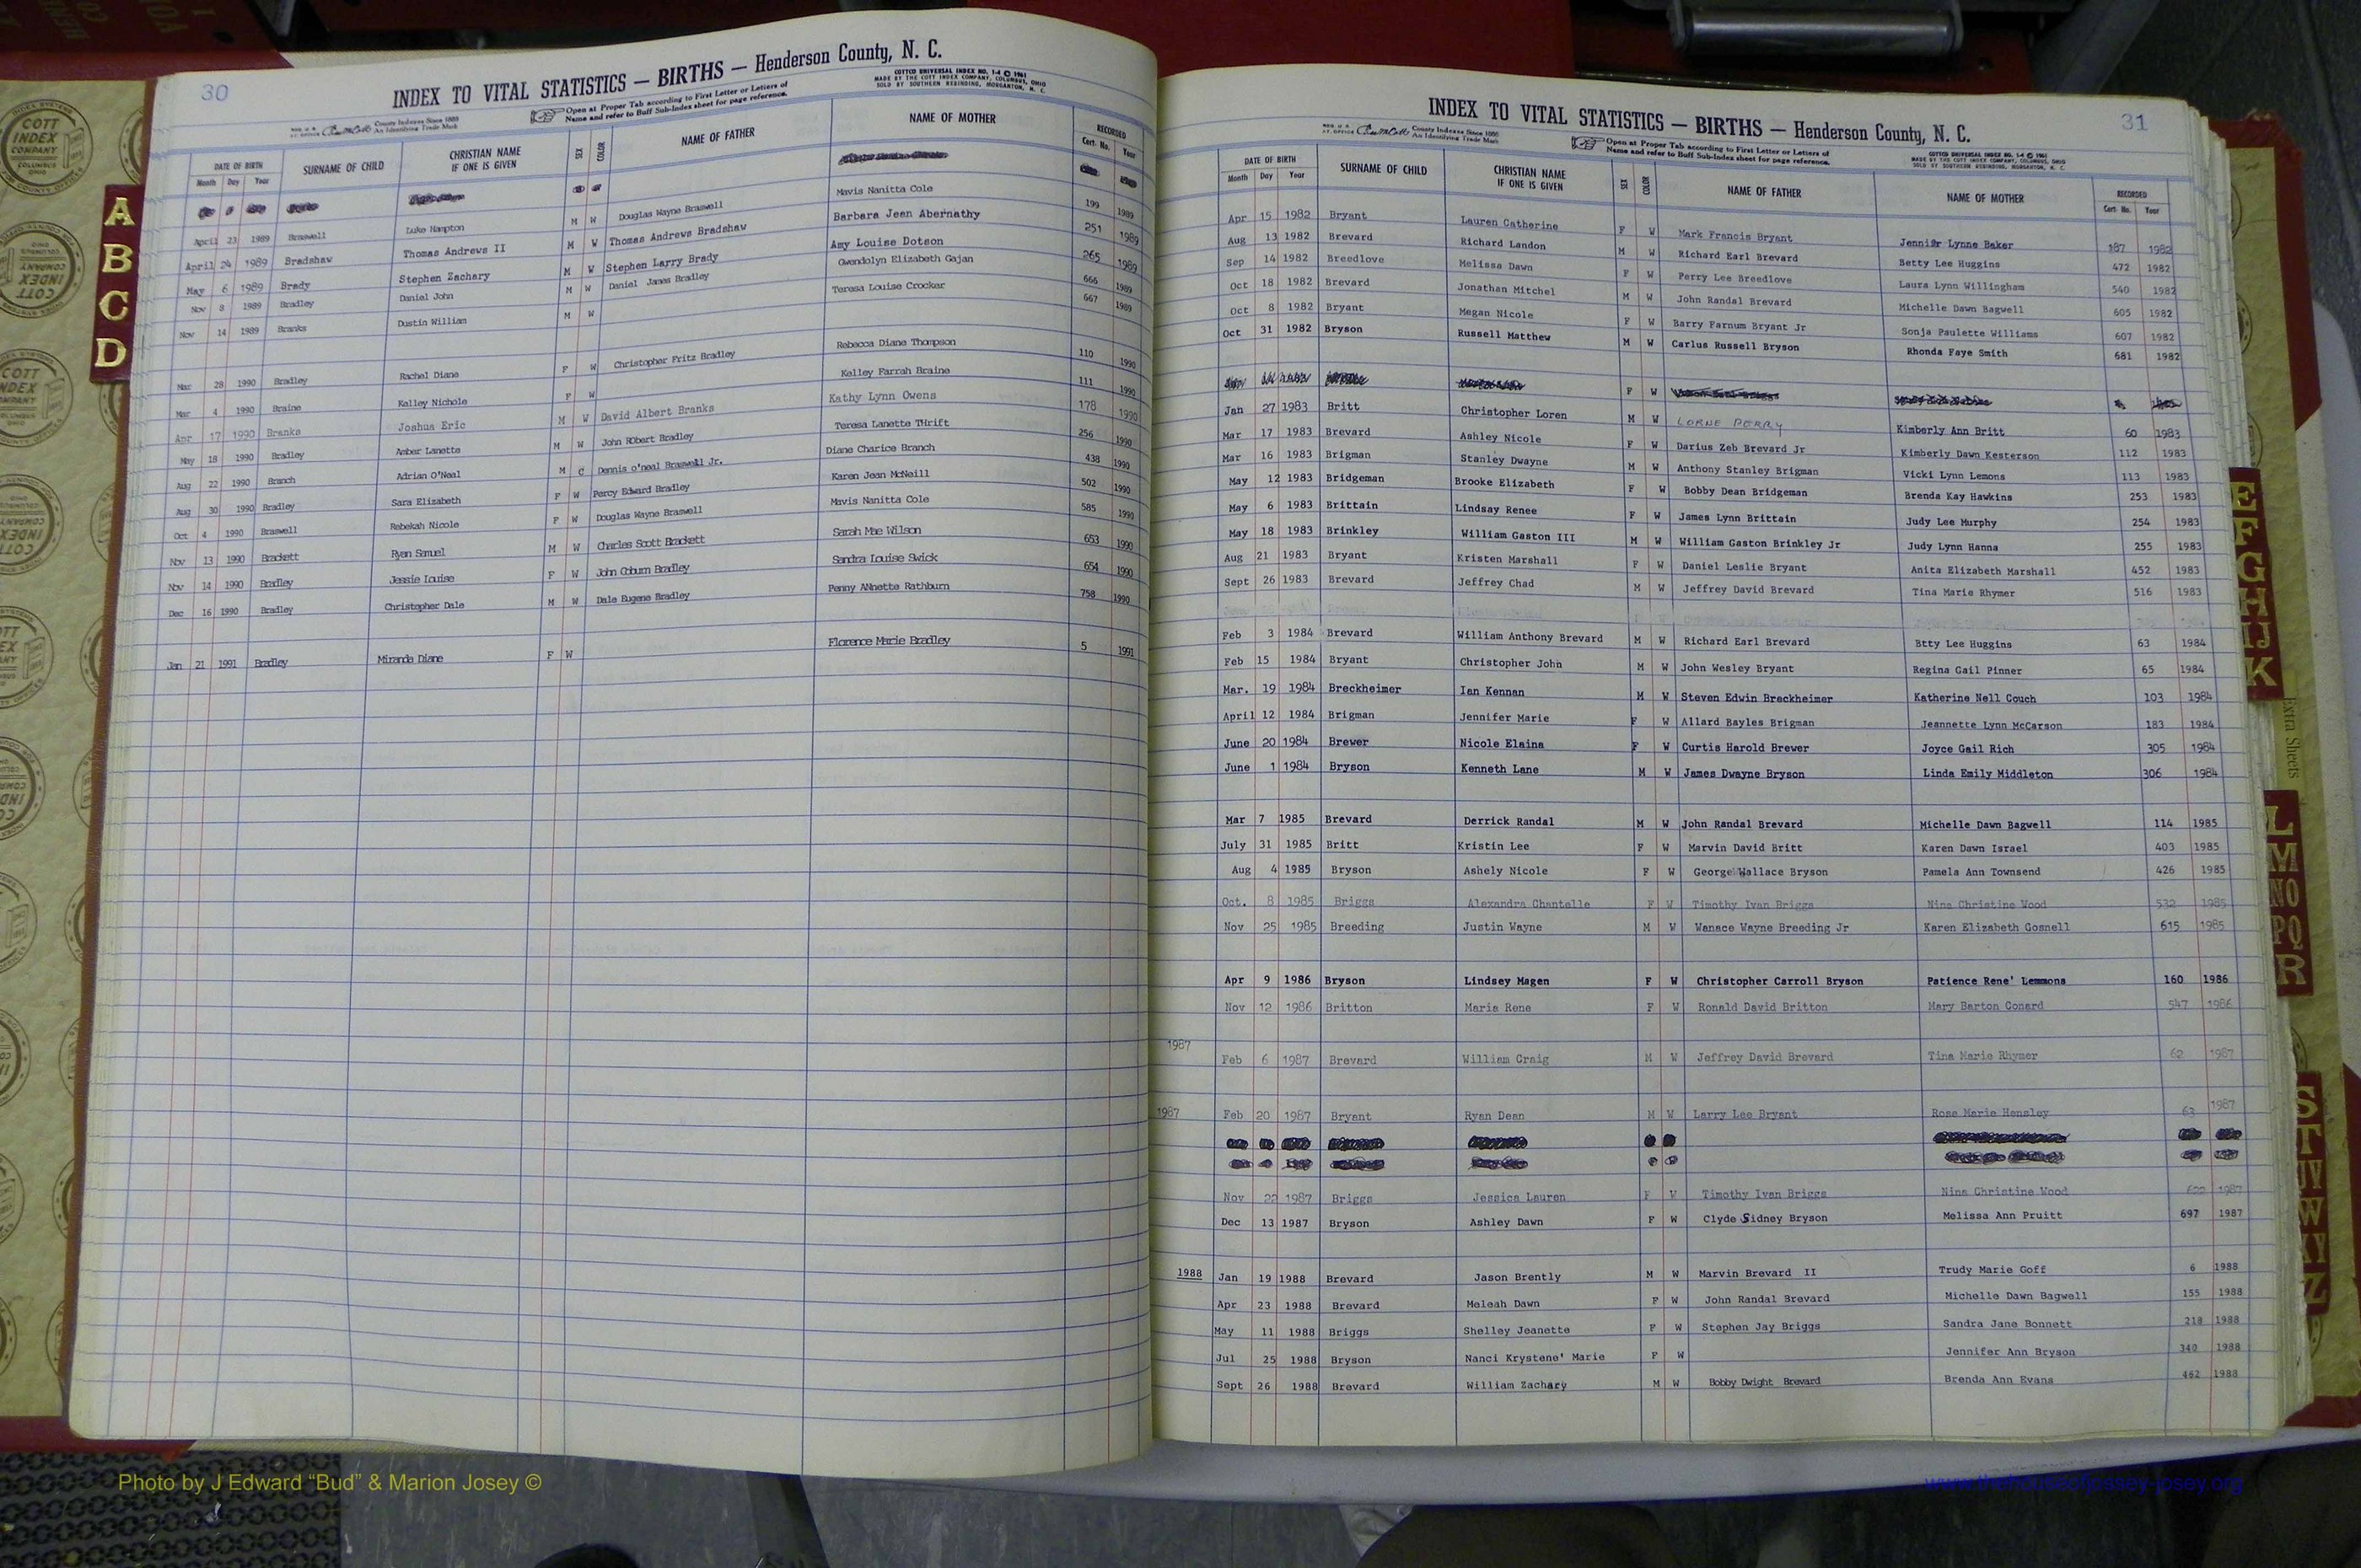 30
INDEX TO VITAL STATISTICS — BIRTHS — Henderson County, N. C.
COTTCO UNIVERSAL INDEX NO. 1-4 © 1961
MADE BY THE COTT INDEX COMPANY, COLUMBUS, OHIO
SOLD BY SOUTHERN REBINDING, MORGANTON, N. C.
County Indexes Since 1888
An Identifying Trade Mark
Open at Proper Tab according to First Letter or Letters of
Name and refer to Buff Sub-Index sheet for page reference.
DATE OF BIRTH SURNAME OF CHILD CHRISTIAN NAME IF ONE IS GIVEN SEX COLOR NAME OF FATHER NAME OF MOTHER RECORDED
Month Day Year Cert. No. Year
April 23 1989 Braswell Luke Hampton M W Douglas Wayne Braswell Mavis Nanitta Cole 199 1989
April 24 1989 Bradshaw Thomas Andrews II M W Thomas Andrews Bradshaw Barbara Jean Abernathy 251 1989
May 6 1989 Brady Stephen Zachary M W Stephen Larry Brady Amy Louise Dotson 265 1989
Nov 8 1989 Bradley Daniel John M W Daniel James Bradley Gwendolyn Elizabeth Gajan 666 1989
Nov 14 1989 Branks Dustin William M W Teresa Louise Crocker 667 1989
Mar 28 1990 Bradley Rachel Diane F W Christopher Fritz Bradley Rebecca Diane Thompson 110 1990
Mar 4 1990 Braine Kelley Nichole F W Kelley Farrah Braine 111 1990
Apr 17 1990 Branks Joshua Eric M W David Albert Branks Kathy Lynn Owens 178 1990
May 18 1990 Bradley Amber Lanette M W John RObert Bradley Teresa Lanette THrift 256 1990
Aug 22 1990 Branch Adrian O'Neal M C Dennis o'neal Braswell Jr. Diane Charice Branch 438 1990
Aug 30 1990 Bradley Sara Elizabeth F W Percy Edward Bradley Karen Jean McNeill 502 1990
Oct 4 1990 Braswell Rebekah Nicole F W Douglas Wayne Braswell Mavis Nanitta Cole 585 1990
Nov 13 1990 Brackett Ryan Samuel M W Charles Scott Brackett Sarah Mae Wilson 653 1990
Nov 14 1990 Bradley Jessie Louise F W John Coburn Bradley Sandra Louise Swick 654 1990
Dec 16 1990 Bradley Christopher Dale M W Dale Eugene Bradley Penny ANnette Rathburn 758 1990
Jan 21 1991 Bradley Miranda Diane F W Florence Marie Bradley 5 1991
31
INDEX TO VITAL STATISTICS — BIRTHS — Henderson County, N. C.
COTTCO UNIVERSAL INDEX NO. 1-4 © 1961
MADE BY THE COTT INDEX COMPANY, COLUMBUS, OHIO
SOLD BY SOUTHERN REBINDING, MORGANTON, N. C.
County Indexes Since 1888
An Identifying Trade Mark
Open at Proper Tab according to First Letter or Letters of
Name and refer to Buff Sub-Index sheet for page reference.
DATE OF BIRTH SURNAME OF CHILD CHRISTIAN NAME IF ONE IS GIVEN SEX COLOR NAME OF FATHER NAME OF MOTHER RECORDED
Month Day Year Cert. No. Year
Apr 15 1982 Bryant Lauren Catherine F W Mark Francis Bryant Jennifer Lynne Baker 187 1982
Aug 13 1982 Brevard Richard Landon M W Richard Earl Brevard Betty Lee Huggins 472 1982
Sep 14 1982 Breedlove Melissa Dawn F W Perry Lee Breedlove Laura Lynn Willingham 540 1982
Oct 18 1982 Brevard Jonathan Mitchel M W John Randal Brevard Michelle Dawn Bagwell 605 1982
Oct 8 1982 Bryant Megan Nicole F W Barry Farnum Bryant Jr Sonja Paulette Williams 607 1982
Oct 31 1982 Bryson Russell Matthew M W Carlus Russell Bryson Rhonda Faye Smith 681 1982
F W
Jan 27 1983 Britt Christopher Loren M W LORNE PERRY Kimberly Ann Britt 60 1983
Mar 17 1983 Brevard Ashley Nicole F W Darius Zeb Brevard Jr Kimberly Dawn Kesterson 112 1983
Mar 16 1983 Brigman Stanley Dwayne M W Anthony Stanley Brigman Vicki Lynn Lemons 113 1983
May 12 1983 Bridgeman Brooke Elizabeth F W Bobby Dean Bridgeman Brenda Kay Hawkins 253 1983
May 6 1983 Brittain Lindsay Renee F W James Lynn Brittain Judy Lee Murphy 254 1983
May 18 1983 Brinkley William Gaston III M W William Gaston Brinkley Jr Judy Lynn Hanna 255 1983
Aug 21 1983 Bryant Kristen Marshall F W Daniel Leslie Bryant Anita Elizabeth Marshall 452 1983
Sept 26 1983 Brevard Jeffrey Chad M W Jeffrey David Brevard Tina Marie Rhymer 516 1983
Feb 3 1984 Brevard William Anthony Brevard M W Richard Earl Brevard Btty Lee Huggins 63 1984
Feb 15 1984 Bryant Christopher John M W John Wesley Bryant Regina Gail Pinner 65 1984
Mar. 19 1984 Breckheimer Ian Kennan M W Steven Edwin Breckheimer Katherine Nell Couch 103 1984
April 12 1984 Brigman Jennifer Marie F W Allard Bayles Brigman Jeannette Lynn McCarson 183 1984
June 20 1984 Brewer Nicole Elaina F W Curtis Harold Brewer Joyce Gail Rich 305 1984
June 1 1984 Bryson Kenneth Lane M W James Dwayne Bryson Linda Emily Middleton 306 1984
Mar 7 1985 Brevard Derrick Randal M W John Randal Brevard Michelle Dawn Bagwell 114 1985
July 31 1985 Britt Kristin Lee F W Marvin David Britt Karen Dawn Israel 403 1985
Aug 4 1985 Bryson Ashely Nicole F W George Wallace Bryson Pamela Ann Townsend 426 1985
Oct. 8 1985 Briggs Alexandra Chantelle F W Timothy Ivan Briggs Nina Christine Wood 532 1985
Nov 25 1985 Breeding Justin Wayne M W Wanace Wayne Breeding Jr Karen Elizabeth Gosnell 615 1985
Apr 9 1986 Bryson Lindsey Magen F W Christopher Carroll Bryson Patience Rene' Lemmons 160 1986
Nov 12 1986 Britton Maria Rene F W Ronald David Britton Mary Barton Conard 547 1986
1987
Feb 6 1987 Brevard William Craig M W Jeffrey David Brevard Tina Marie Rhymer 62 1987
1987 Feb 20 1987 Bryant Ryan Dean M W Larry Lee Bryant Rose Marie Hensley 63 1987
Nov 22 1987 Briggs Jessica Lauren F W Timothy Ivan Briggs Nina Christine Wood 1987
Dec 13 1987 Bryson Ashley Dawn F W Clyde Sidney Bryson Melissa Ann Pruitt 697 1987
1988 Jan 19 1988 Brevard Jason Brently M W Marvin Brevard II Trudy Marie Goff 6 1988
Apr 23 1988 Brevard Meleah Dawn F W John Randal Brevard Michelle Dawn Bagwell 155 1988
May 11 1988 Briggs Shelley Jeanette F W Stephen Jay Briggs Sandra Jane Bonnett 218 1988
Jul 25 1988 Bryson Nanci Krystene' Marie F W Jennifer Ann Bryson 340 1988
Sept 26 1988 Brevard William Zachary M W Bobby Dwight Brevard Brenda Ann Evans 462 1988
A
B
C
D
E
F
G
H
IJ
K
Extra Sheets
L
M
NO
PQ
R
S
T
UV
W
XY
Z
COTT
INDEX
COMPANY
COLUMBUS
OHIO
Photo by J Edward “Bud” & Marion Josey ©
www.thehouseofjossey-josey.org